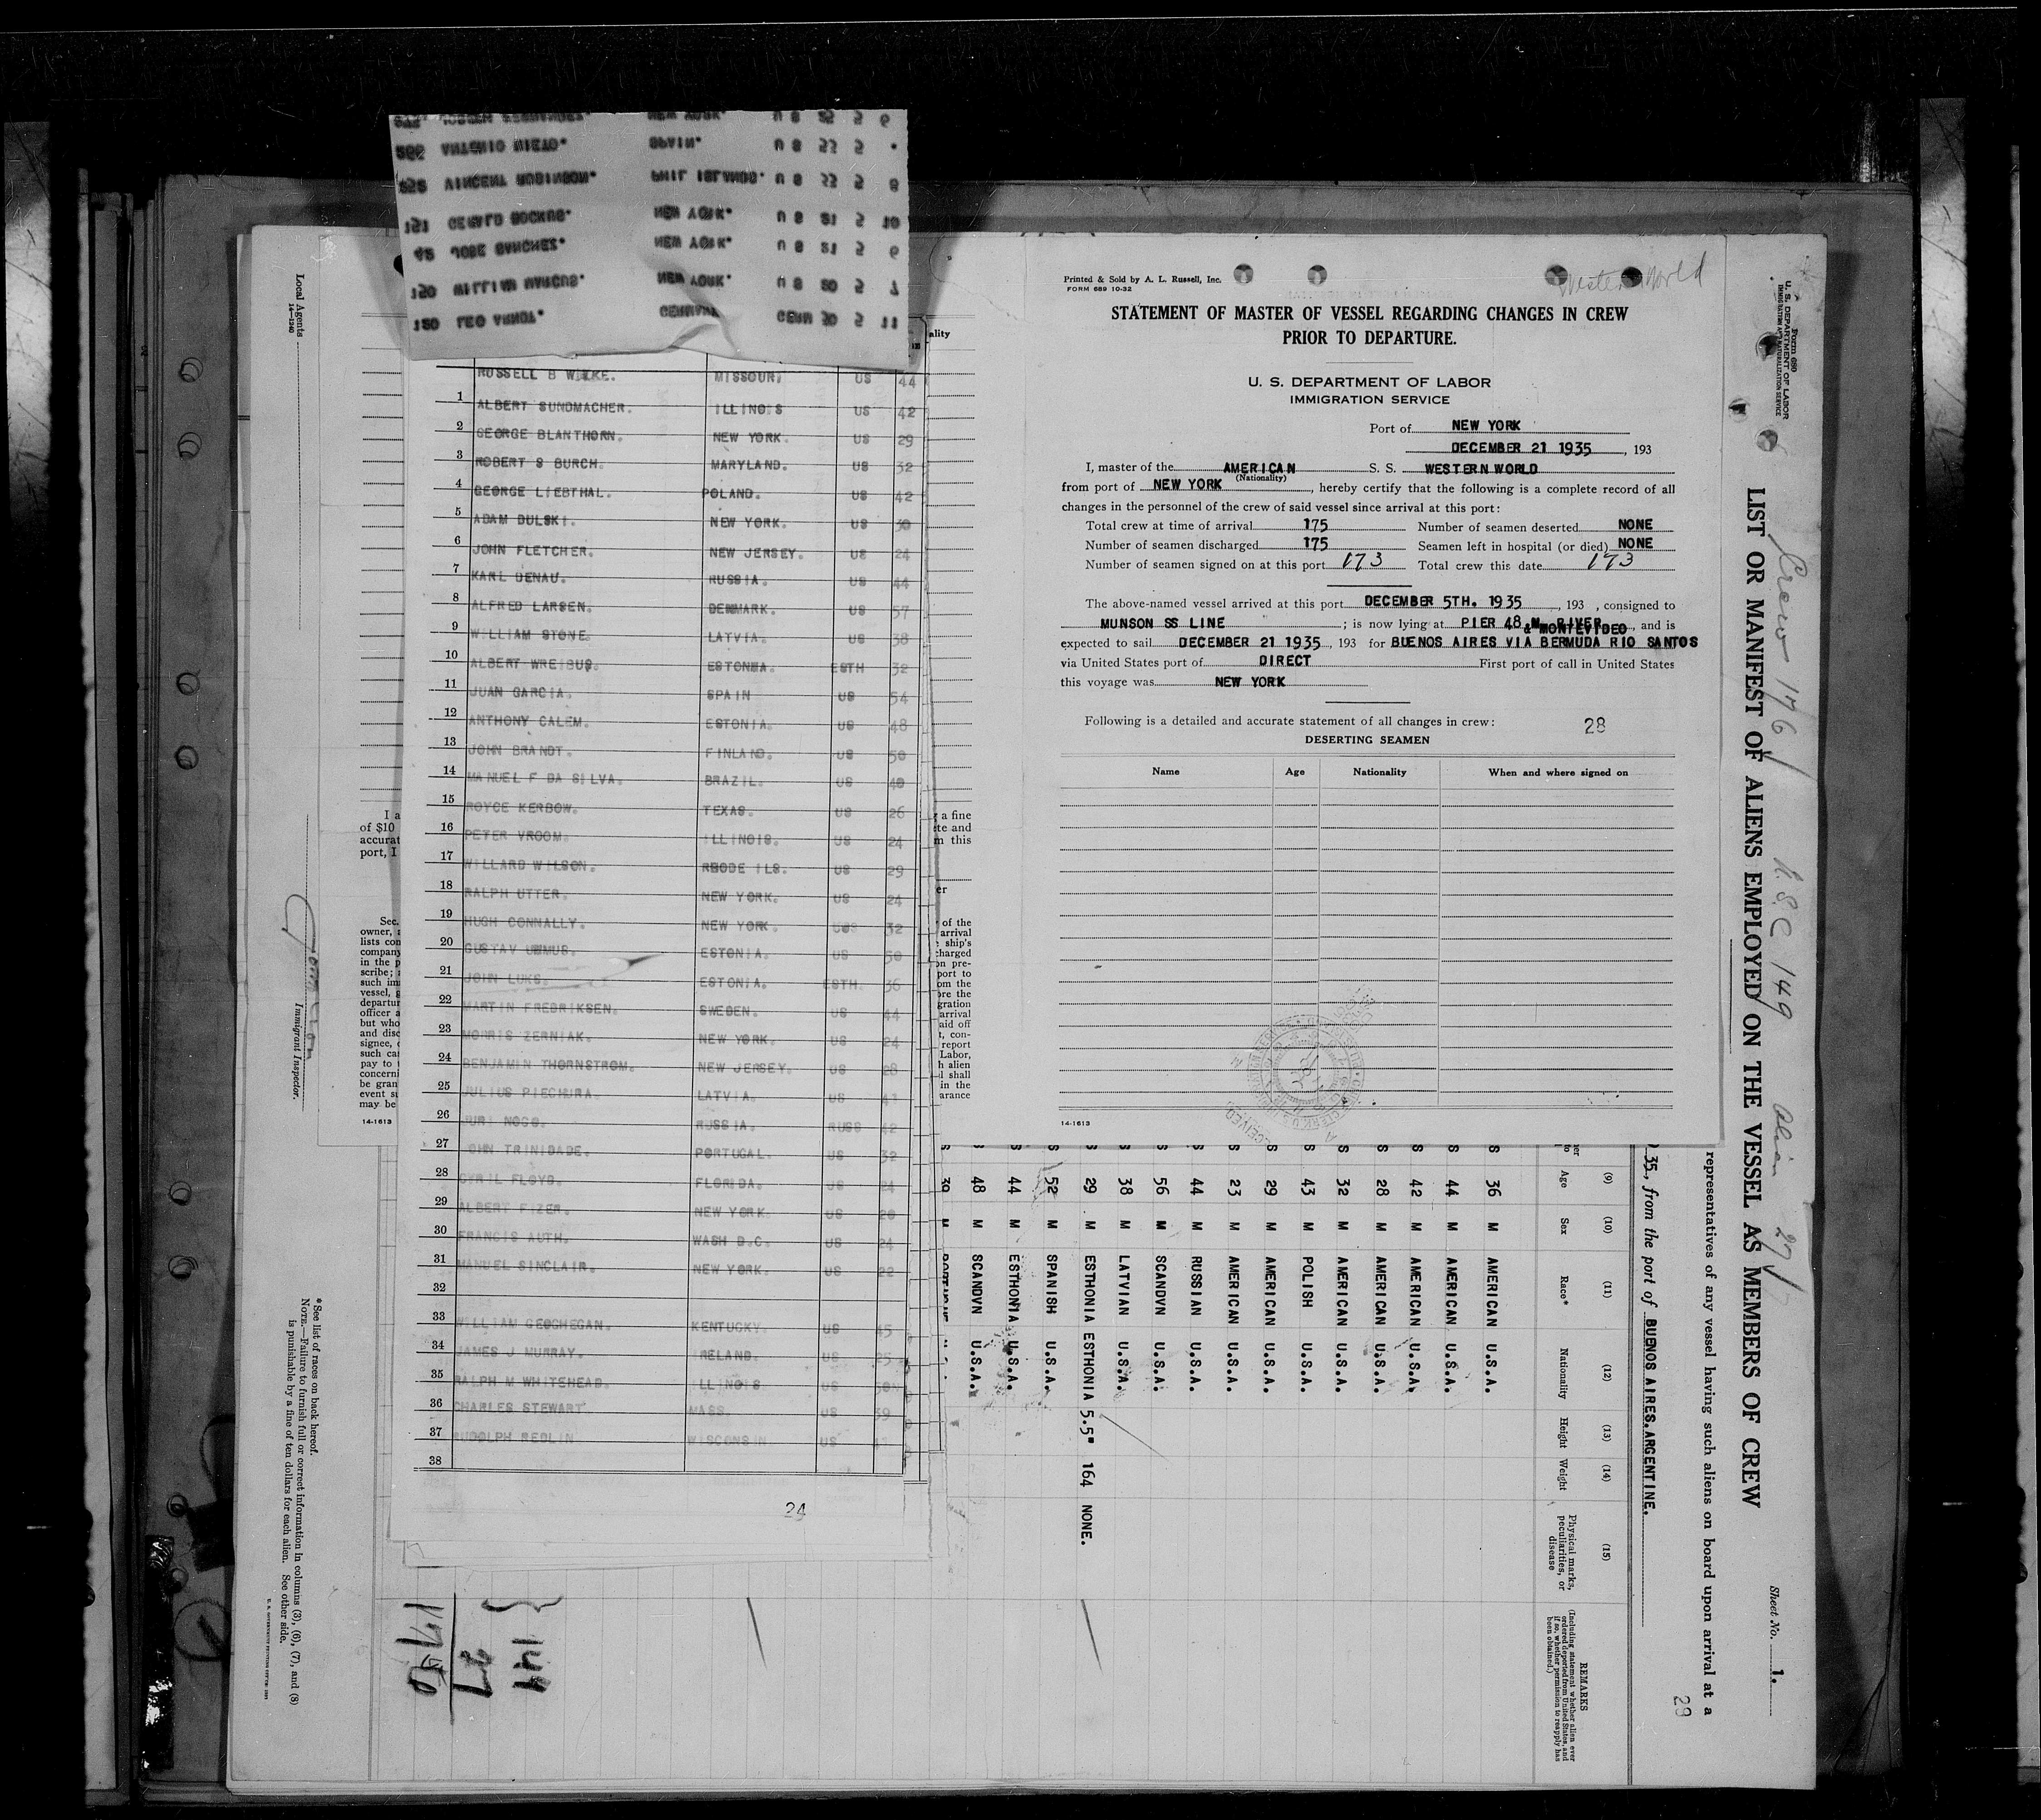 272 JOSEPH FERNANDEZ. NEW YORK. U S 25 5 6
266 ANTONIO NIETO. SPAIN. U S 33 5
252 VINCENT ROBINSON. PHIL ISLANDS. U S 33 5 8
151 GERALD BOCKUS. NEW YORK. U S 21 5 10
42 JOSE SANCHEZ. NEW YORK. U S 21 5 6
150 WILLIAM MARCUS. NEW YORK U S 20 5 7
120 LEO ARNDT. GERMANY GERM 30 5 11
RUSSELL B WILKE. MISSOURI US 44
1 ALBERT SUNDMACHER. ILLINOIS US 42
2 GEORGE BLANTHORN. NEW YORK. US 29
3 ROBERT S BURCH. MARYLAND. US 32
4 GEORGE LIEBTHAL. POLAND. US 42
5 ADAM DULSKI. NEW YORK. US 30
6 JOHN FLETCHER. NEW JERSEY. US 24
7 KARL DENAU. RUSSIA. US 44
8 ALFRED LARSEN. DENMARK. US 57
9 WILLIAM STONE. LATVIA. US 38
10 ALBERT WREIBUS. ESTONIA. ESTH 32
11 JUAN GARCIA. SPAIN US 54
12 ANTHONY CALEM. ESTONIA. US 48
13 JOHN BRANDT. FINLAND. US 50
14 MANUEL F DA SILVA. BRAZIL. US 40
15 ROYCE KERBOW. TEXAS. US 26
16 PETER VROOM. ILLINOIS. US 24
17 WILLARD WILSON. RHODE ILS. US 29
18 RALPH UTTER. NEW YORK. US 24
19 HUGH CONNALLY. NEW YORK. US 32
20 GUSTAV UMMUS. ESTONIA. US 50
21 JOHN LUKS. ESTONIA. ESTH. 36
22 MARTIN FREDRIKSEN. SWEDEN. US 44
23 MORRIS ZERNIAK. NEW YORK. US 24
24 BENJAMIN THORNSTROM. NEW JERSEY. US 28
25 JULIUS PIECHURA. LATVIA. US
26 JURI NOGO. RUSSIA. RUSS 42
27 JOHN TRINIDADE. PORTUGAL. US 32
28 CYRIL FLOYD. FLORIDA. US 24
29 ALBERT FIZER. NEW YORK. US 20
30 FRANCIS AUTH. WASH D.C. US 24
31 MANUEL SINCLAIR. NEW YORK. US 22
32
33 WILLIAM GEOGHEGAN. KENTUCKY. US 45
34 JAMES J MURRAY. IRELAND. US
35 RALPH M WHITEHEAD. ILLINOIS US
36 CHARLES STEWART. MASS. US 39
37 RUDOLPH REDLIN WISCONSIN US
38
24
Printed & Sold by A. L. Russell, Inc.
FORM 689 10-32
Western World
STATEMENT OF MASTER OF VESSEL REGARDING CHANGES IN CREW
PRIOR TO DEPARTURE.
U. S. DEPARTMENT OF LABOR
IMMIGRATION SERVICE
Port of NEW YORK
DECEMBER 21 1935, 193
I, master of the AMERICAN S. S. WESTERN WORLD
(Nationality)
from port of NEW YORK, hereby certify that the following is a complete record of all
changes in the personnel of the crew of said vessel since arrival at this port:
Total crew at time of arrival 175 Number of seamen deserted NONE
Number of seamen discharged 175 Seamen left in hospital (or died) NONE
Number of seamen signed on at this port 173 Total crew this date 173
The above-named vessel arrived at this port DECEMBER 5TH. 1935, 193 , consigned to
MUNSON SS LINE; is now lying at PIER 48 N. RIVER, and is
& MONTEVIDEO
expected to sail DECEMBER 21 1935, 193 for BUENOS AIRES VIA BERMUDA RIO SANTOS
via United States port of DIRECT First port of call in United States
this voyage was NEW YORK
Following is a detailed and accurate statement of all changes in crew: 28
DESERTING SEAMEN
Name Age Nationality When and where signed on
14-1613
Form 680
U. S. DEPARTMENT OF LABOR
IMMIGRATION AND NATURALIZATION SERVICE
Crew 176 U.S.C 149 Alien 27
LIST OR MANIFEST OF ALIENS EMPLOYED ON THE VESSEL AS MEMBERS OF CREW
Sheet No. 1.
representatives of any vessel having such aliens on board upon arrival at a
35, from the port of BUENOS AIRES.ARGENTINE.
29
(9) (10) (11) (12) (13) (14) (15)
Age Sex Race* Nationality Height Weight Physical marks, peculiarities, or disease
REMARKS
(Including statement whether alien ever ordered deported from United States, and if so, whether permission to reapply has been obtained.)
36 M AMERICAN U.S.A.
44 M AMERICAN U.S.A.
42 M AMERICAN U.S.A.
28 M AMERICAN U.S.A.
32 M AMERICAN U.S.A.
43 M POLISH U.S.A.
29 M AMERICAN U.S.A.
23 M AMERICAN U.S.A.
44 M RUSSIAN U.S.A.
56 M SCANDVN U.S.A.
38 M LATVIAN U.S.A.
29 M ESTHONIA ESTHONIA 5.5" 164 NONE.
52 M SPANISH U.S.A.
44 M ESTHONIA U.S.A.
48 M SCANDVN U.S.A.
39 M
Local Agents
14-1240
Immigrant Inspector.
14-1613
*See list of races on back hereof.
NOTE.—Failure to furnish full or correct information in columns (3), (6), (7), and (8)
is punishable by a fine of ten dollars for each alien. See other side.